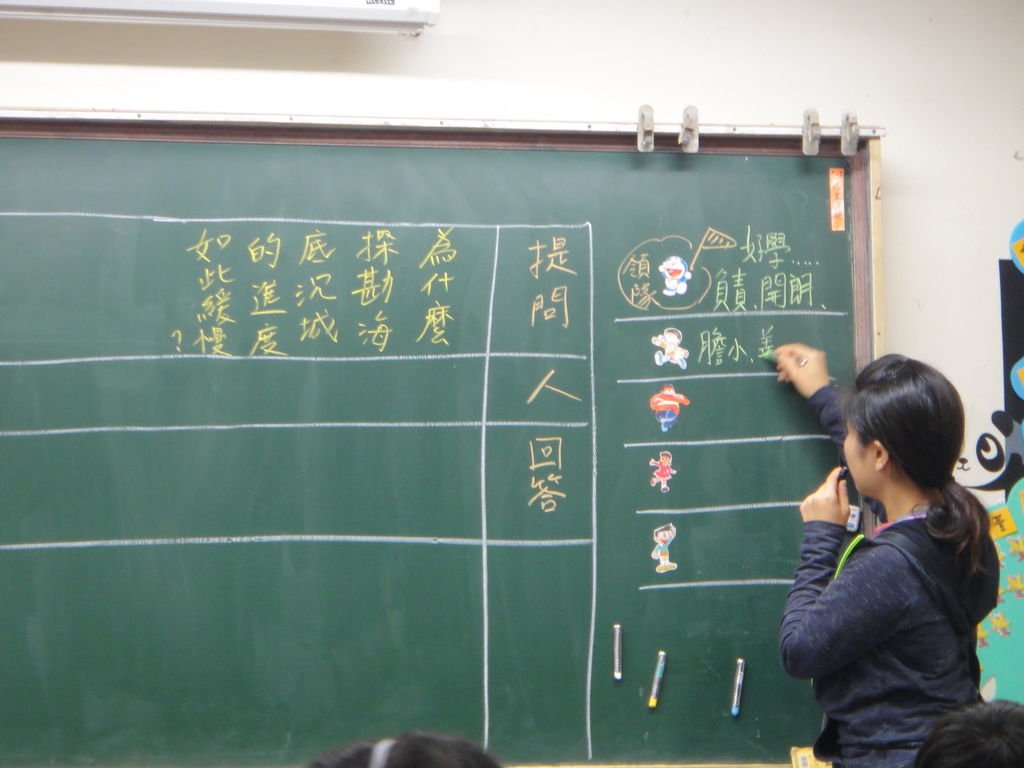 領隊
好學.....
負責、開朗、
膽小、善
提問
人
回答
為什麼
探勘海
底沉城
的進度
如此緩慢
?